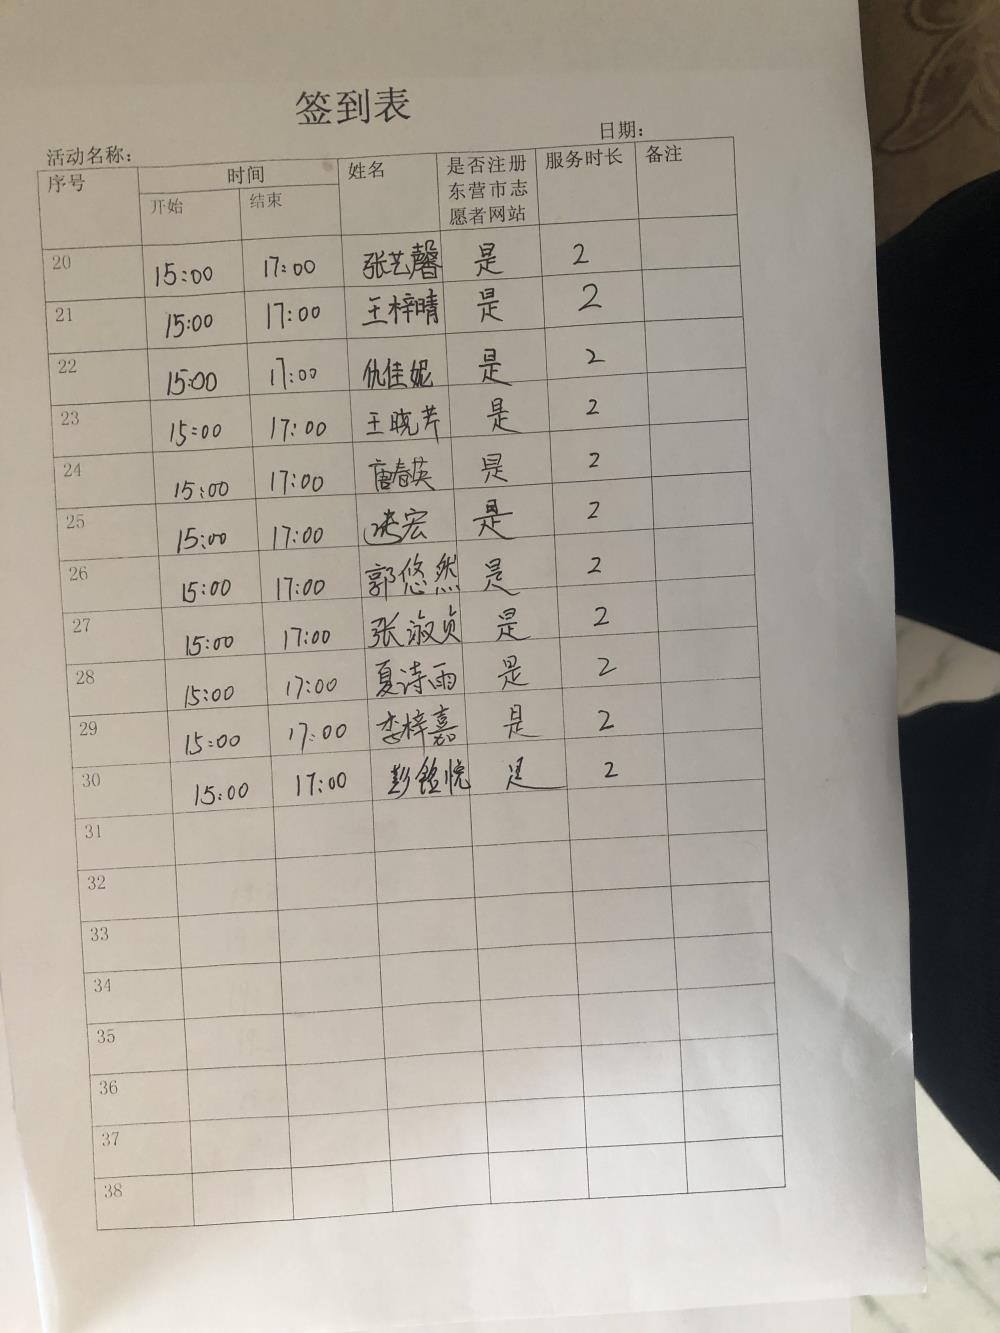 签到表
活动名称: 日期:
序号 时间 姓名 是否注册东营市志愿者网站 服务时长 备注
开始 结束
20 15:00 17:00 张艺馨 是 2
21 15:00 17:00 王梓晴 是 2
22 15:00 17:00 仇佳妮 是 2
23 15:00 17:00 王晓芹 是 2
24 15:00 17:00 唐春英 是 2
25 15:00 17:00 宏 是 2
26 15:00 17:00 郭悠然 是 2
27 15:00 17:00 张淑贞 是 2
28 15:00 17:00 夏诗雨 是 2
29 15:00 17:00 李梓嘉 是 2
30 15:00 17:00 彭铭悦 是 2
31
32
33
34
35
36
37
38